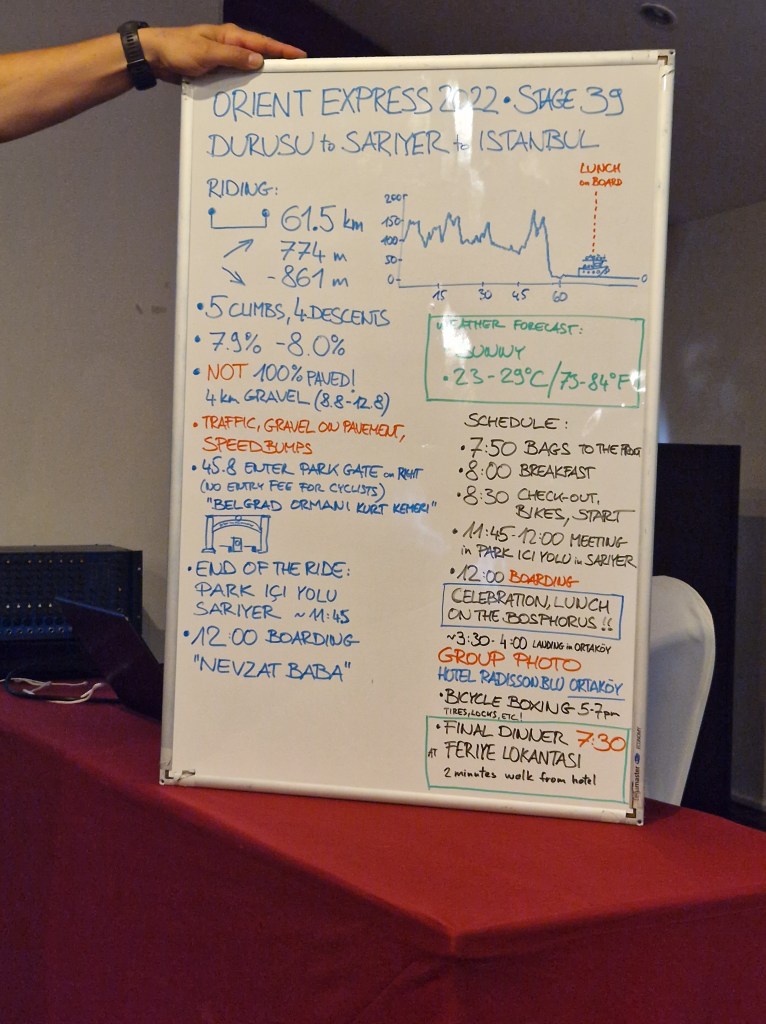 ORIENT EXPRESS 2022 • STAGE 39
DURUSU to SARIYER to ISTANBUL
RIDING:
61.5 km
774 m
-861 m
• 5 CLIMBS, 4 DESCENTS
• 7.9% -8.0%
• NOT 100% PAVED!
4 km GRAVEL (8.8-12.8)
• TRAFFIC, GRAVEL ON PAVEMENT,
SPEEDBUMPS
• 45.8 ENTER PARK GATE on RIGHT
(NO ENTRY FEE FOR CYCLISTS)
"BELGRAD ORMANI KURT KEMERI"
• END OF THE RIDE:
PARK IÇI YOLU
SARIYER ~11:45
• 12:00 BOARDING
"NEVZAT BABA"
LUNCH
on BOARD
200
150
100
50
0
0
15 30 45 60
WEATHER FORECAST:
• SUNNY
• 23-29°C/75-84°F
SCHEDULE:
• 7:50 BAGS TO THE
• 8:00 BREAKFAST
• 8:30 CHECK-OUT,
BIKES, START
• 11:45-12:00 MEETING
in PARK ICI YOLU in SARIYER
• 12:00 BOARDING
CELEBRATION, LUNCH
ON THE BOSPHORUS!!
~3:30-4:00 LANDING in ORTAKÖY
GROUP PHOTO
HOTEL RADISSON BLU ORTAKÖY
• BICYCLE BOXING 5-7pm
TIRES, LOCKS, ETC!
• FINAL DINNER 7:30
AT FERIYE LOKANTASI
2 minutes walk from hotel